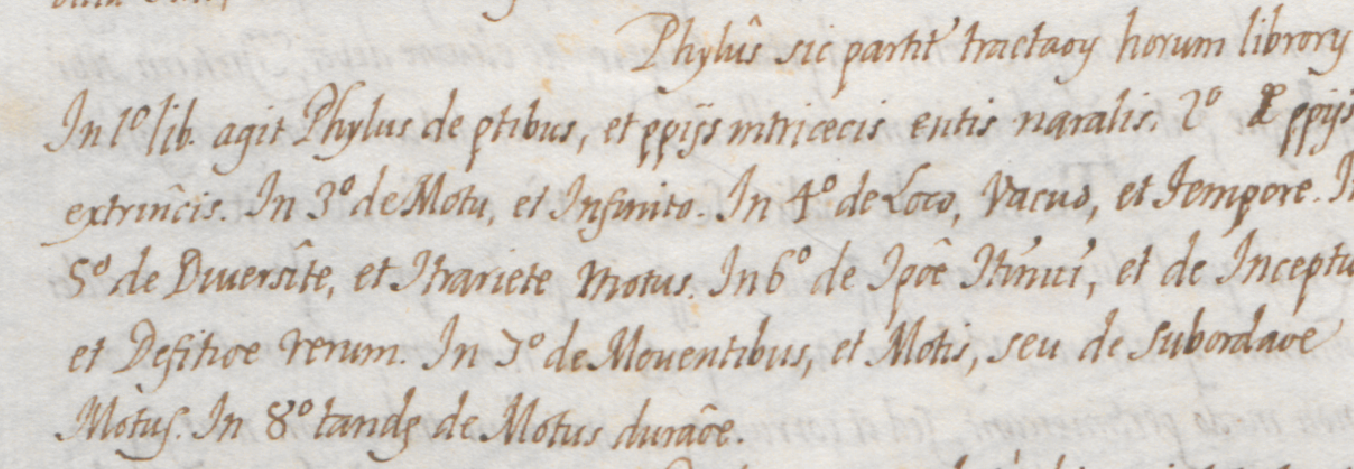 Phylûs sic partit' tractaoy horum librory
In 1º lib. agit Phylus de ptibus, et ppijs intricecis entis naralis. 2º de ppijs
extrincîs. In 3º de Motu, et Infinito. In 4º de Loco, Vacuo, et Tempore. In
5º de Diversîte, et Itrariete Motus. In 6º de Ipôe Itinui, et de Inceptu
et Desitioe rerum. In 7º de Moventibus, et Motis, seu de subordaoe
Motus. In 8º tandẽ de Motus durâoe.